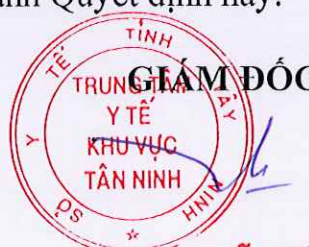 nh Quyết định này.
GIÁM ĐỐC
SỞ Y TẾ TỈNH TÂY NINH
TRUNG TÂM
Y TẾ
KHU VỰC
TÂN NINH